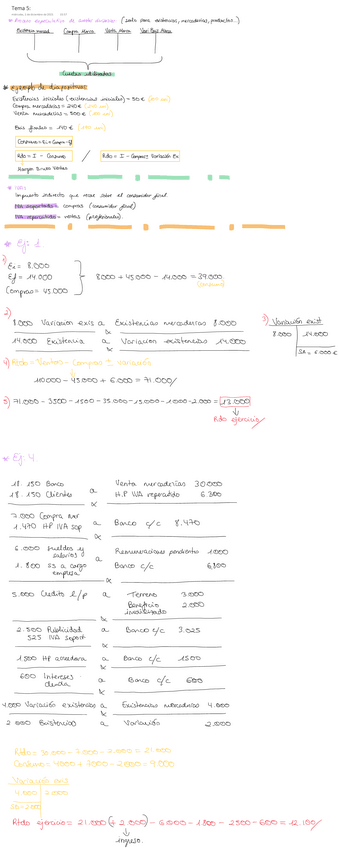 Tema 5:
Existencias iniciales (existencias iniciales) = 50 €
Compra mercaderías = 240 €
Venta mercaderías = 300 €
Exis finales = 140 €
Rdo = I - Consumo / Rdo = I - Compras ± Variación Ex
* IVA:
Impuesto indirecto que recae sobre el consumidor final.
IVA soportado = compras (consumidor final)
IVA repercutido = ventas
* Ej: 1
1)
Ei = 8.000
Ef = 14.000
Compras = 45.000
8000 + 45.000 - 14.000 = 39.000
(consumo)
2)
8.000 Variación exis a Existencias mercaderías 8.000
14.000 Existencia a Variación existencias 14.000
3) Variación exist
8.000 14.000
SA = 6.000 €
4) Rdo = Ventas - Compras ± variación
110.000 - 45.000 + 6.000 = 71.000
5) 71.000 - 3500 - 1500 - 35.000 - 15.000 - 1.000 - 2.000 = 13.000
Rdo ejercicio
* Ej: 4
18.150 Banco
18.150 Clientes a Venta mercaderías 30.000
H.P IVA repercutido 6.300
7.000 Compra mer
1.470 HP IVA sop a Banco c/c 8.470
6.000 Sueldos y salarios
1.800 SS a cargo empresa a Remuneraciones pendientes 1000
Banco c/c 6.800
5.000 Credito l/p a Terreno 3.000
Beneficio inmovilizado 2.000
2.500 Publicidad
525 IVA soport a Banco c/c 3.025
1500 HP acreedora a Banco c/c 1500
600 Intereses deuda a Banco c/c 600
4.000 Variación existencias a Existencias mercaderías 4.000
2.000 Existencias a Variación 2.000
Rdo = 30.000 - 7.000 - 2.000 = 21.000
Consumo = 4000 + 7000 - 2000 = 9.000
Variación exis
4.000 2.000
SD = 2.000
Rtdo ejercicio = 21.000 (+ 2.000) - 6.000 - 1.800 - 2500 - 600 = 12.100
ingreso.